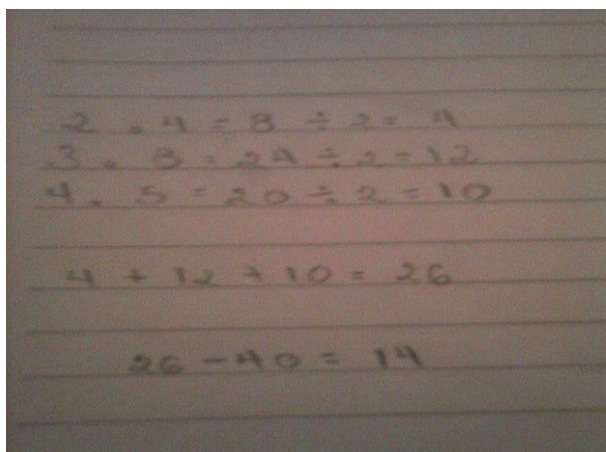 2 . 4 = 8 ÷ 2 = 4
3 . 8 = 24 ÷ 2 = 12
4 . 5 = 20 ÷ 2 = 10
4 + 12 + 10 = 26
26 - 40 = 14